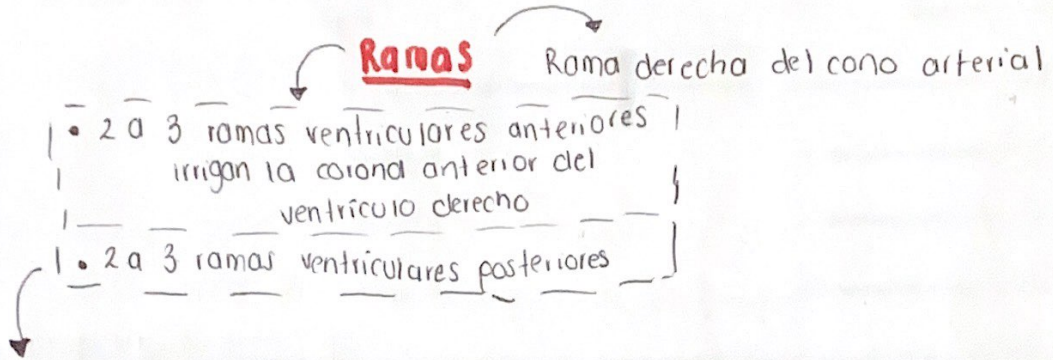 Ramas Rama derecha del cono arterial
• 2 a 3 ramas ventriculares anteriores
irrigan la corona anterior del
ventrículo derecho
• 2 a 3 ramas ventriculares posteriores